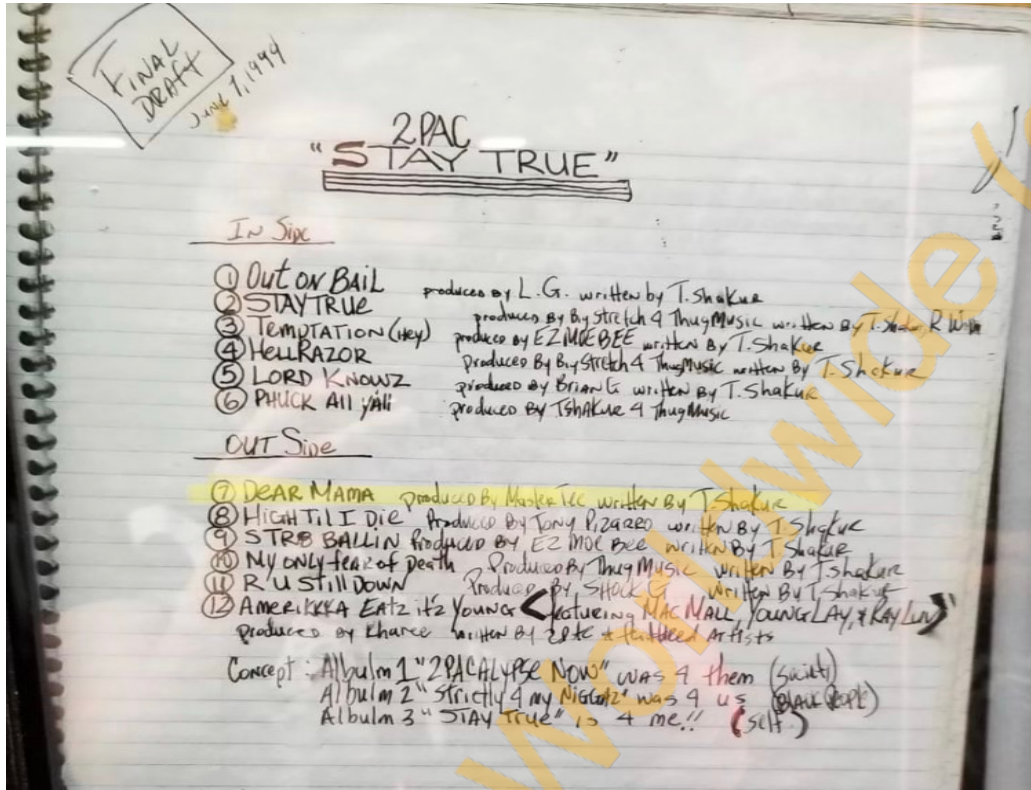 FINAL
DRAFT
June 7, 1994
2PAC
"STAY TRUE"
IN Side
① Out ON BAIL produced By L.G. written by T. Shakur
② STAYTRUE produced By Big Stretch 4 ThugMusic written By T. Shakur R
③ TEMPTATION (Hey) produced by EZ MOE BEE written By T. Shakur
④ HELLRAZOR Produced By Big Stretch 4 ThugMusic written By T. Shakur
⑤ LORD KNOWZ produced by BRIAN G written By T. Shakur
⑥ PHUCK All y'All produced By TShAKUR 4 ThugMusic
OUT Side
⑦ DEAR MAMA produced By Master Tee written By T. Shakur
⑧ HIGH Til I Die Produced By Tony Pizarro written By T. Shakur
⑨ STR8 BALLIN Produced By EZ MOE BEE written By T. Shakur
⑩ My only fear of Death Produced By Thug Music written By T. Shakur
⑪ R'U Still DOWN Produced By SHOCK G written By T. Shakur
⑫ AmeriKKKA Eatz it'z YOUNG < featuring MAC MALL, YOUNG LAY, & RAY LUV>
produced by Khayree written By 2PAC & featured Artists
Concept: Albulm 1 "2PACALYPSE NOW" was 4 them (society)
Albulm 2 "Strictly 4 my Niggaz" was 4 us (BLACK PEOPLE)
Albulm 3 "STAY True" is 4 me!! (self)
Worldwide